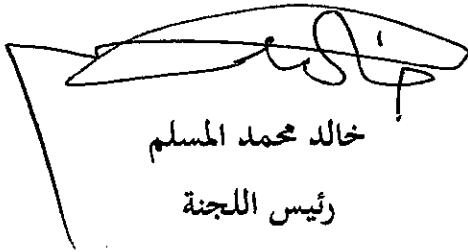 خالد محمد المسلم
رئيس اللجنة